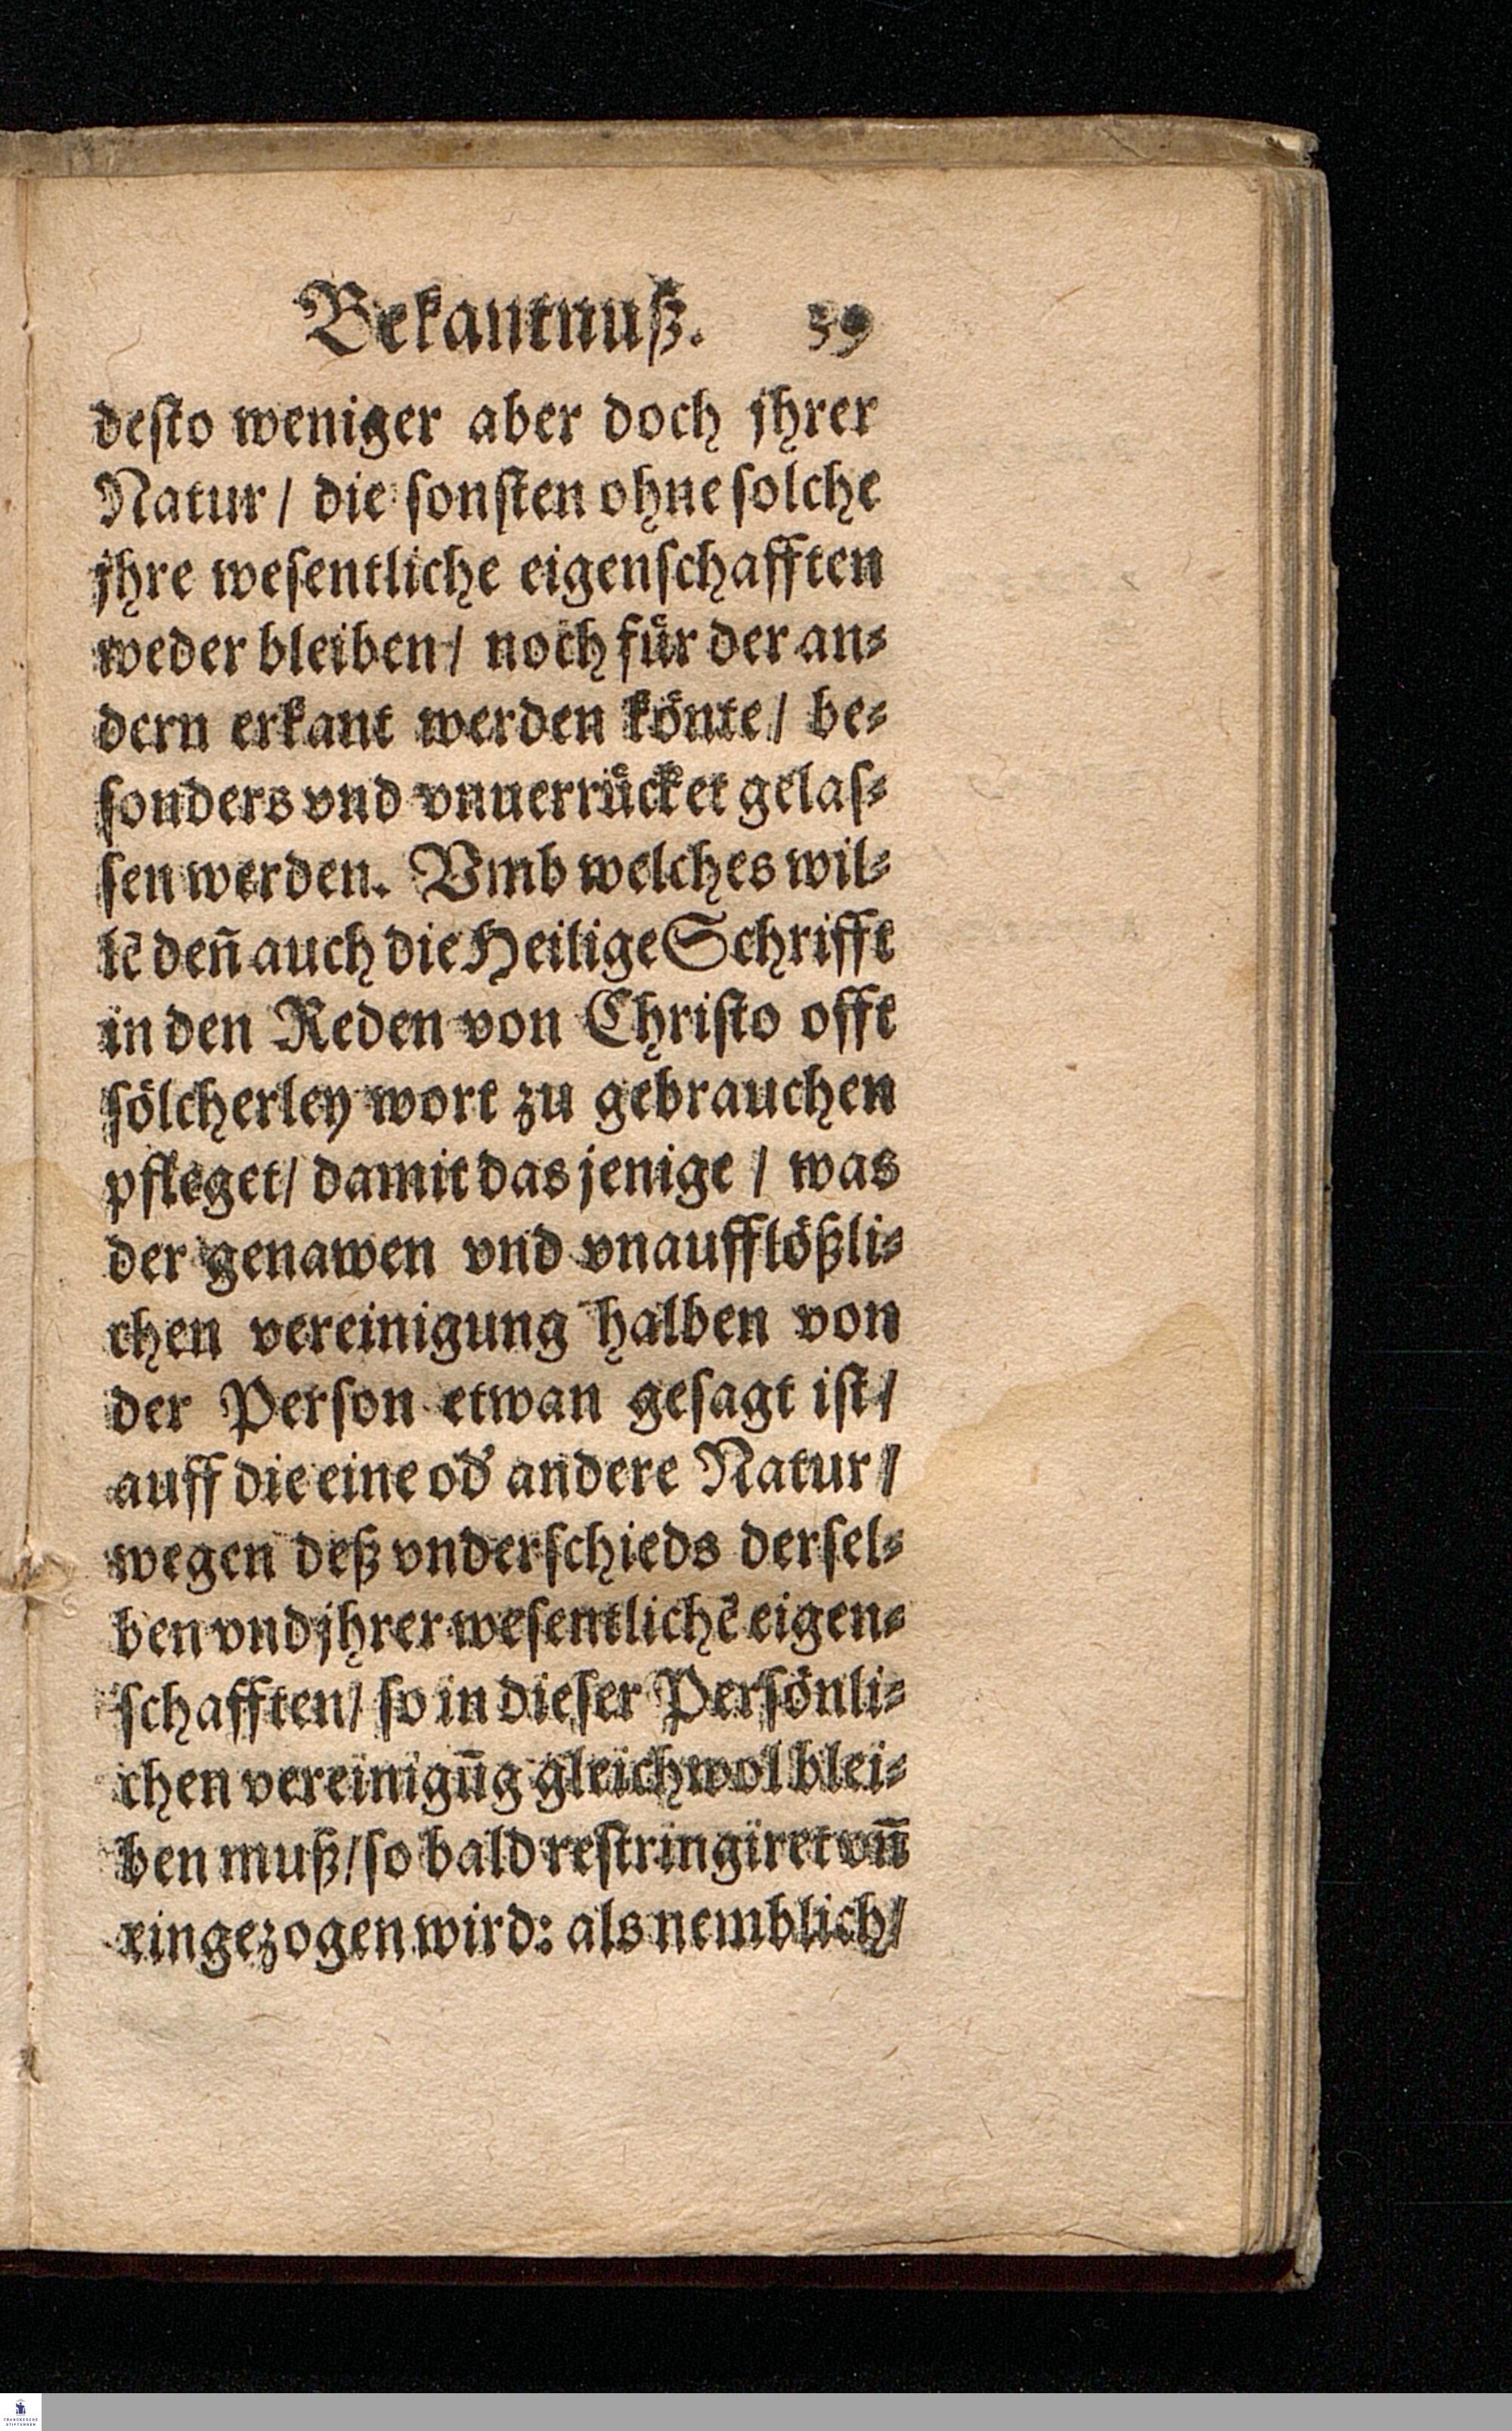 Bekantnuß. 39
deſto weniger aber doch jhrer
Natur / die ſonſten ohne ſolche
jhre weſentliche eigenſchafften
weder bleiben / noch für der an⸗
dern erkant werden könte / be⸗
ſonders vnd vnuerrücket gelaſ⸗
ſen werden. Vmb welches wil⸗
lē deñ auch die Heilige Schrifft
in den Reden von Chriſto offt
ſölcherley wort zu gebrauchen
pfleget / damit das jenige / was
der genawen vnd vnaufflößli⸗
chen vereinigung halben von
der Perſon etwan geſagt iſt /
auff die eine od' andere Natur /
wegen deß vnderſchieds derſel⸗
ben vnd jhrer weſentlichē eigen⸗
ſchafften / ſo in dieſer Perſönli⸗
chen vereinigūg gleichwol blei⸗
ben muß / ſo bald reſtringiret vñ
eingezogen wird: als nemblich /
FRANCKESCHE
STIFTUNGEN